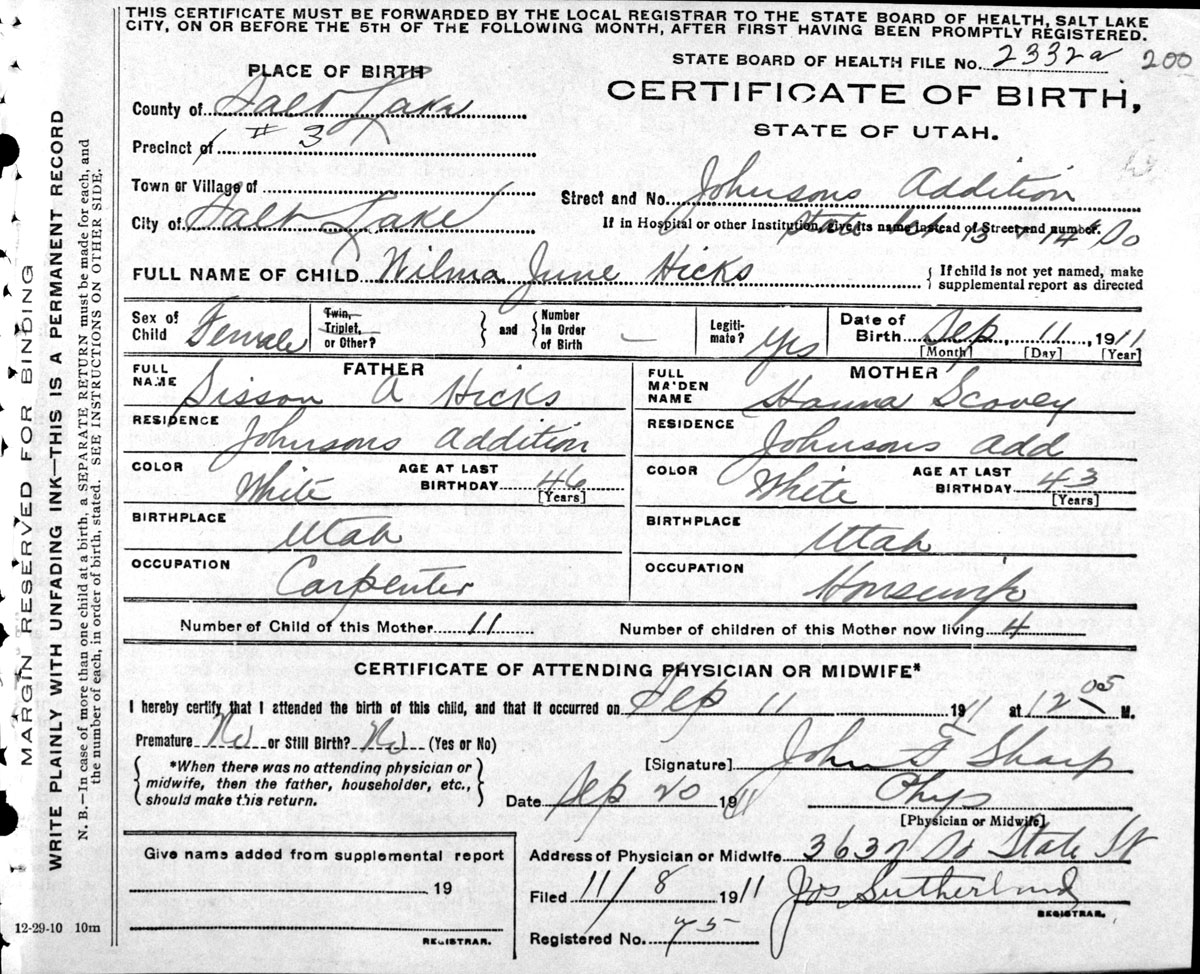 THIS CERTIFICATE MUST BE FORWARDED BY THE LOCAL REGISTRAR TO THE STATE BOARD OF HEALTH, SALT LAKE
CITY, ON OR BEFORE THE 5TH OF THE FOLLOWING MONTH, AFTER FIRST HAVING BEEN PROMPTLY REGISTERED.
STATE BOARD OF HEALTH FILE No. 2332a 200
PLACE OF BIRTH
CERTIFICATE OF BIRTH,
STATE OF UTAH.
County of Salt Lake
Precinct of # 3
Town or Village of
Street and No. Johnsons Addition
City of Salt Lake
If in Hospital or other Institution, give its name instead of Street and number.
State 13 + 14 So
FULL NAME OF CHILD Wilma June Hicks
{ If child is not yet named, make
supplemental report as directed
Sex of Child Female
Twin, Triplet, or Other?
} and { Number in Order of Birth –
Legiti-mate? Yes
Date of Birth Sep, 11, 1911
[Month] [Day] [Year]
FATHER
FULL NAME Sisson A Hicks
RESIDENCE Johnsons Addition
COLOR White AGE AT LAST BIRTHDAY 46 [Years]
BIRTHPLACE Utah
OCCUPATION Carpenter
MOTHER
FULL MAIDEN NAME Hanna Scovey
RESIDENCE Johnsons Add
COLOR White AGE AT LAST BIRTHDAY 43 [Years]
BIRTHPLACE Utah
OCCUPATION Housewife
Number of Child of this Mother 11 Number of children of this Mother now living 4
CERTIFICATE OF ATTENDING PHYSICIAN OR MIDWIFE*
I hereby certify that I attended the birth of this child, and that it occurred on Sep 11 1911 at 12 05 M.
Premature No or Still Birth? No (Yes or No)
{ *When there was no attending physician or
midwife, then the father, householder, etc.,
should make this return. }
[Signature] John F Sharp
Date Sep 20 1911 Phys
[Physician or Midwife]
Give name added from supplemental report
19
REGISTRAR.
Address of Physician or Midwife 3637 So State St
Filed 11/8 1911 Jos Sutherland
REGISTRAR.
Registered No. 45
12-29-10 10m
MARGIN RESERVED FOR BINDING
WRITE PLAINLY WITH UNFADING INK—THIS IS A PERMANENT RECORD
N. B.—In case of more than one child at a birth, a SEPARATE RETURN must be made for each, and
the number of each, in order of birth, stated. SEE INSTRUCTIONS ON OTHER SIDE.